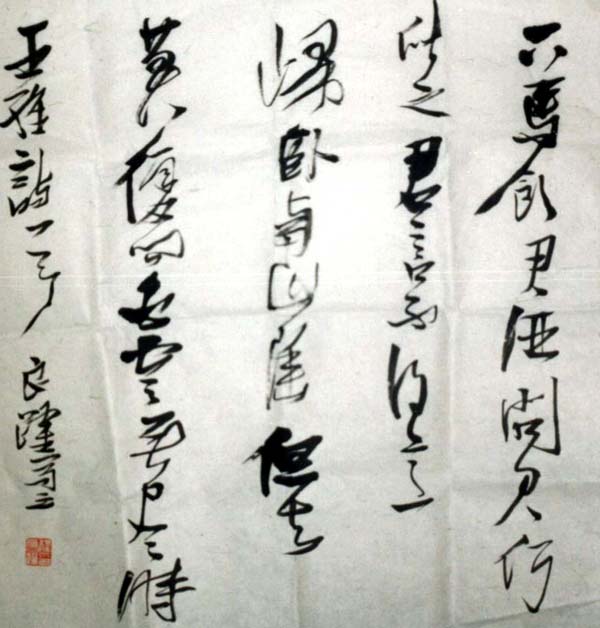 下馬飲君酒問君何
所之君言不得意
歸臥南山陲但去
莫復問白雲無盡時
王維詩一首 良躍書